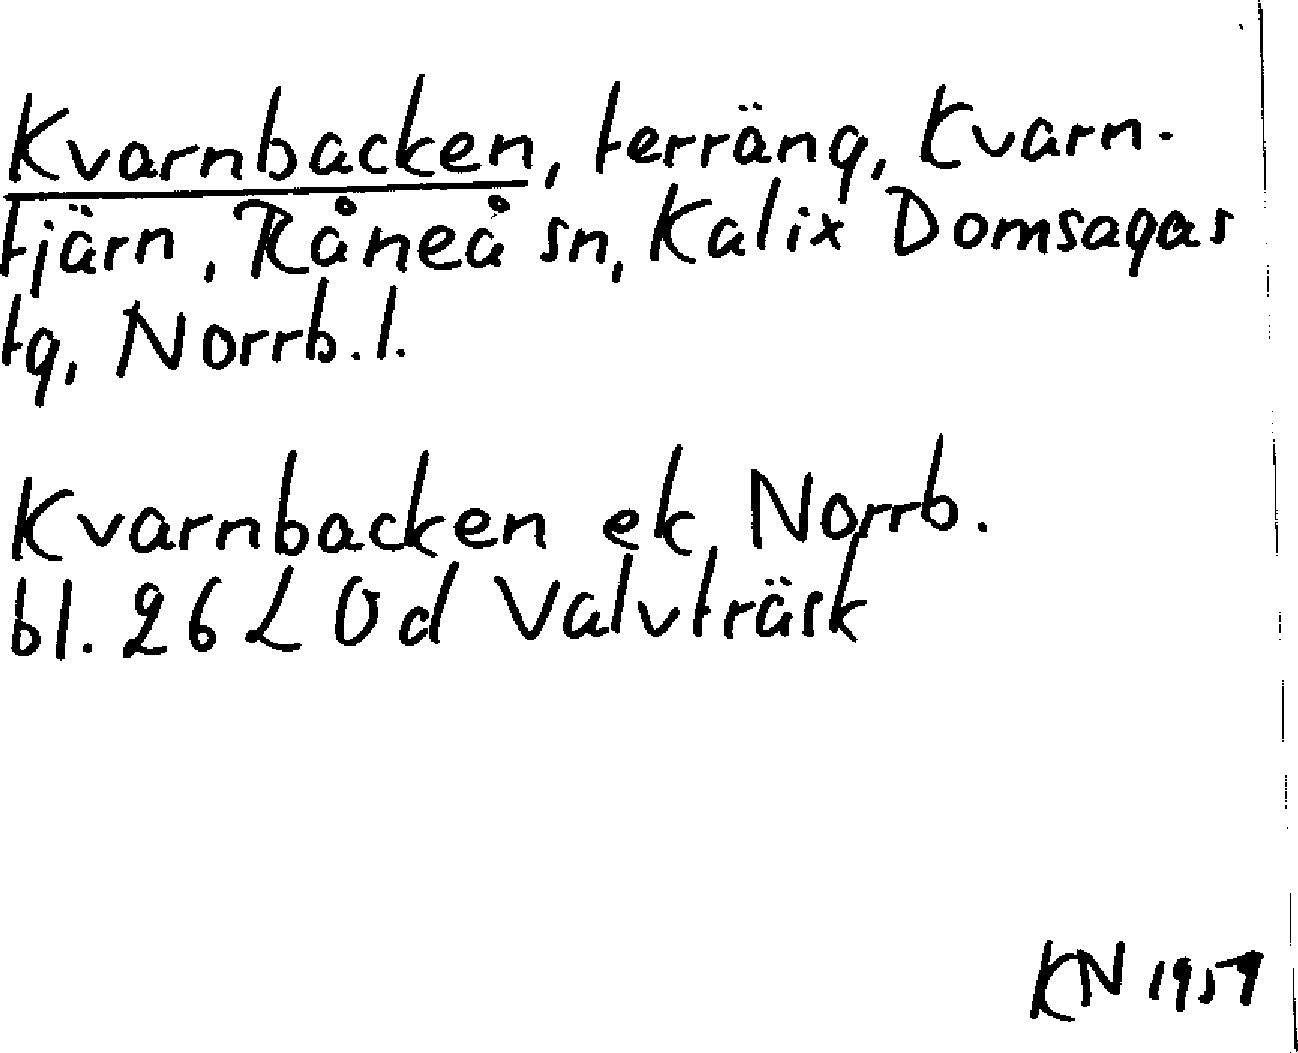 Kvarnbacken, terräng, Kvarn-
tjärn, Råneå sn, Kalix Domsagas
tg, Norrb. l.
Kvarnbacken ek, Norrb.
bl. 26 L Od Valvträsk
KN 1957